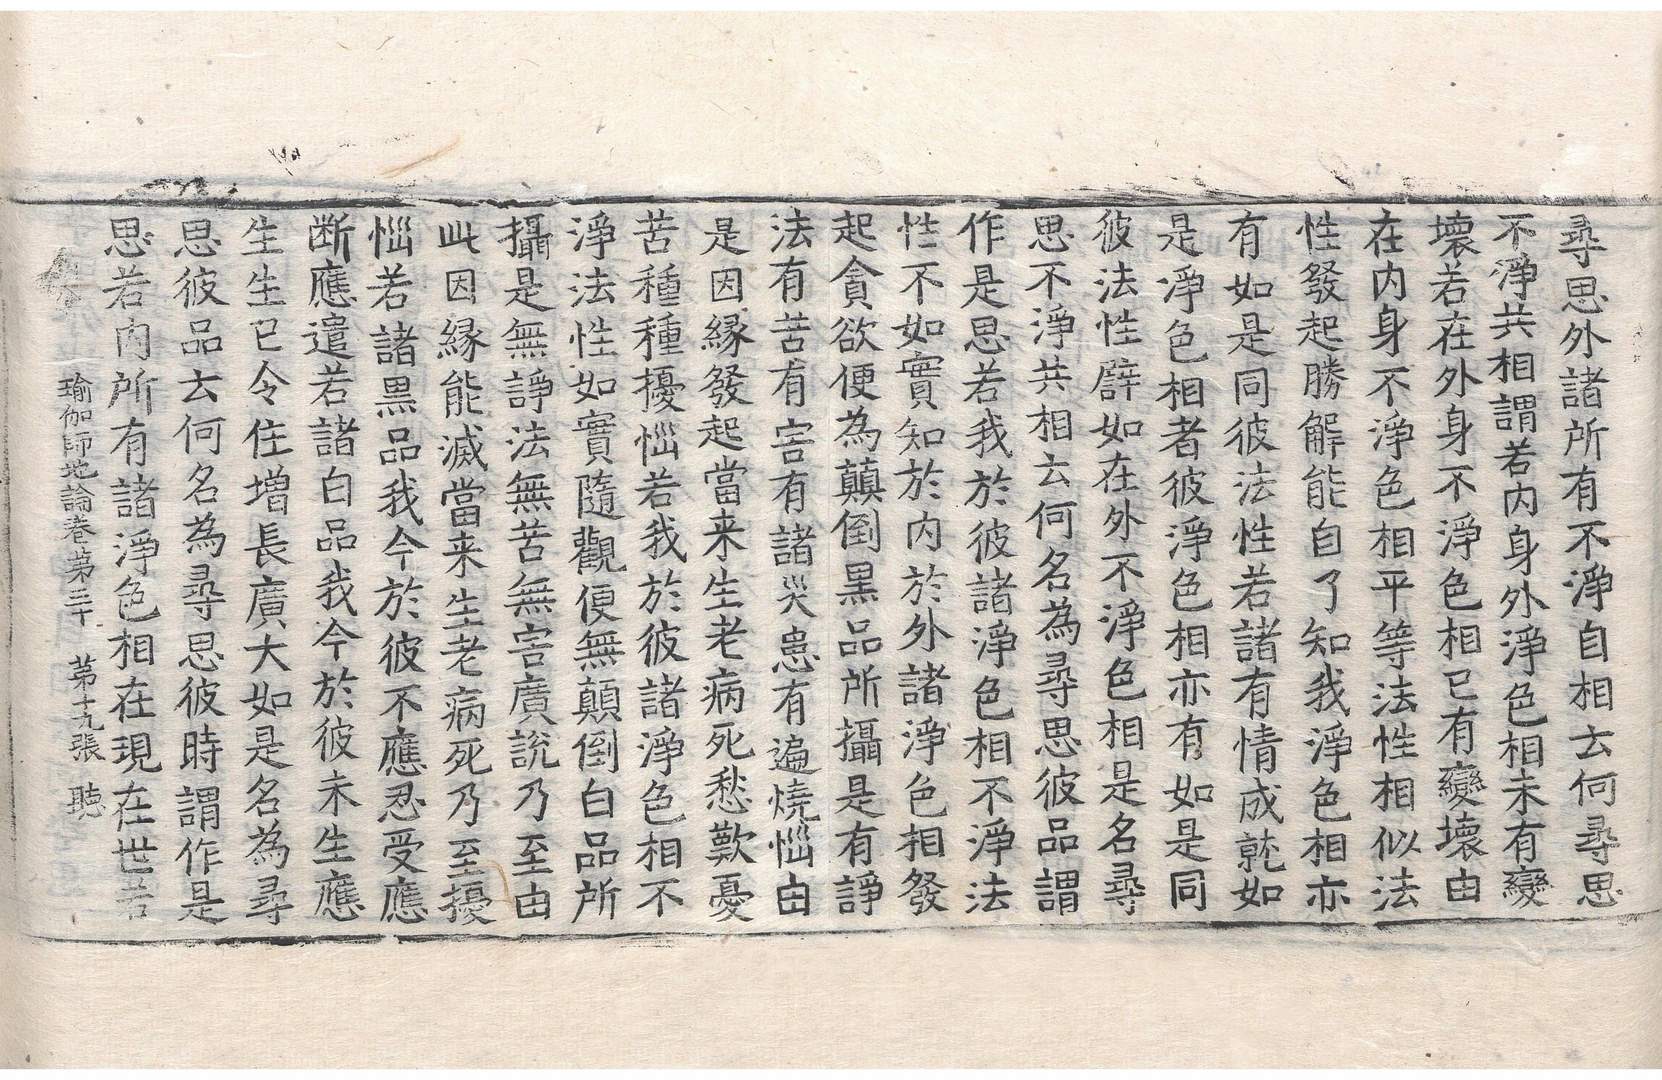 尋思外諸所有不淨自相云何尋思
不淨共相謂若內身外淨色相未有變
壞若在外身不淨色相已有變壞由
在內身不淨色相平等法性相似法
性發起勝解能自了知我淨色相亦
有如是同彼法性若諸有情成就如
是淨色相者彼淨色相亦有如是同
彼法性譬如在外不淨色相是名尋
思不淨共相云何名為尋思彼品謂
作是思若我於彼諸淨色相不淨法
性不如實知於內於外諸淨色相發
起貪欲便為顛倒黑品所攝是有諍
法有苦有害有諸災患有遍燒惱由
是因緣發起當来生老病死愁歎憂
苦種種擾惱若我於彼諸淨色相不
淨法性如實隨觀便無顛倒白品所
攝是無諍法無苦無害廣說乃至由
此因緣能滅當来生老病死乃至擾
惱若諸黑品我今於彼不應忍受應
断應遣若諸白品我今於彼未生應
生生已令住增長廣大如是名為尋
思彼品云何名為尋思彼時謂作是
思若內所有諸淨色相在現在世若
瑜伽師地論卷第三十 第十九張 聴